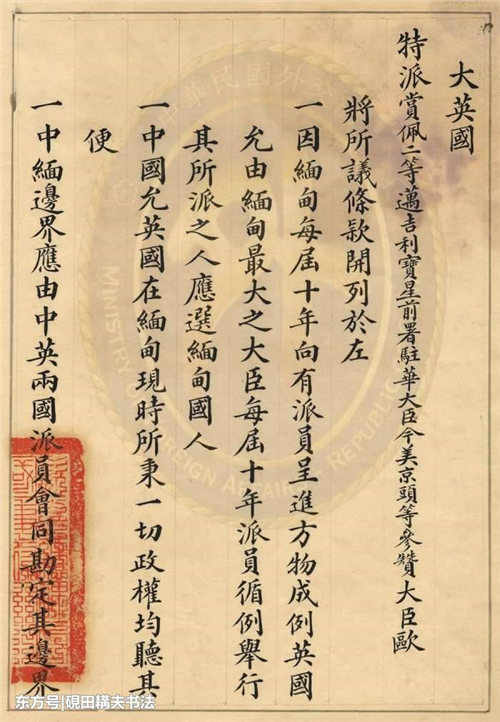 大英國
特派賞佩二等邁吉利寶星前署駐華大臣今美京頭等參贊大臣歐
將所議條款開列於左
一因緬甸每屆十年向有派員呈進方物成例英國
允由緬甸最大之大臣每屆十年派員循例舉行
其所派之人應選緬甸國人
一中國允英國在緬甸現時所秉一切政權均聽其
便
一中緬邊界應由中英兩國派員會同勘定其邊界
MINISTRY OF FOREIGN AFFAIRS REPUBLIC
東方号|硯田耩夫书法